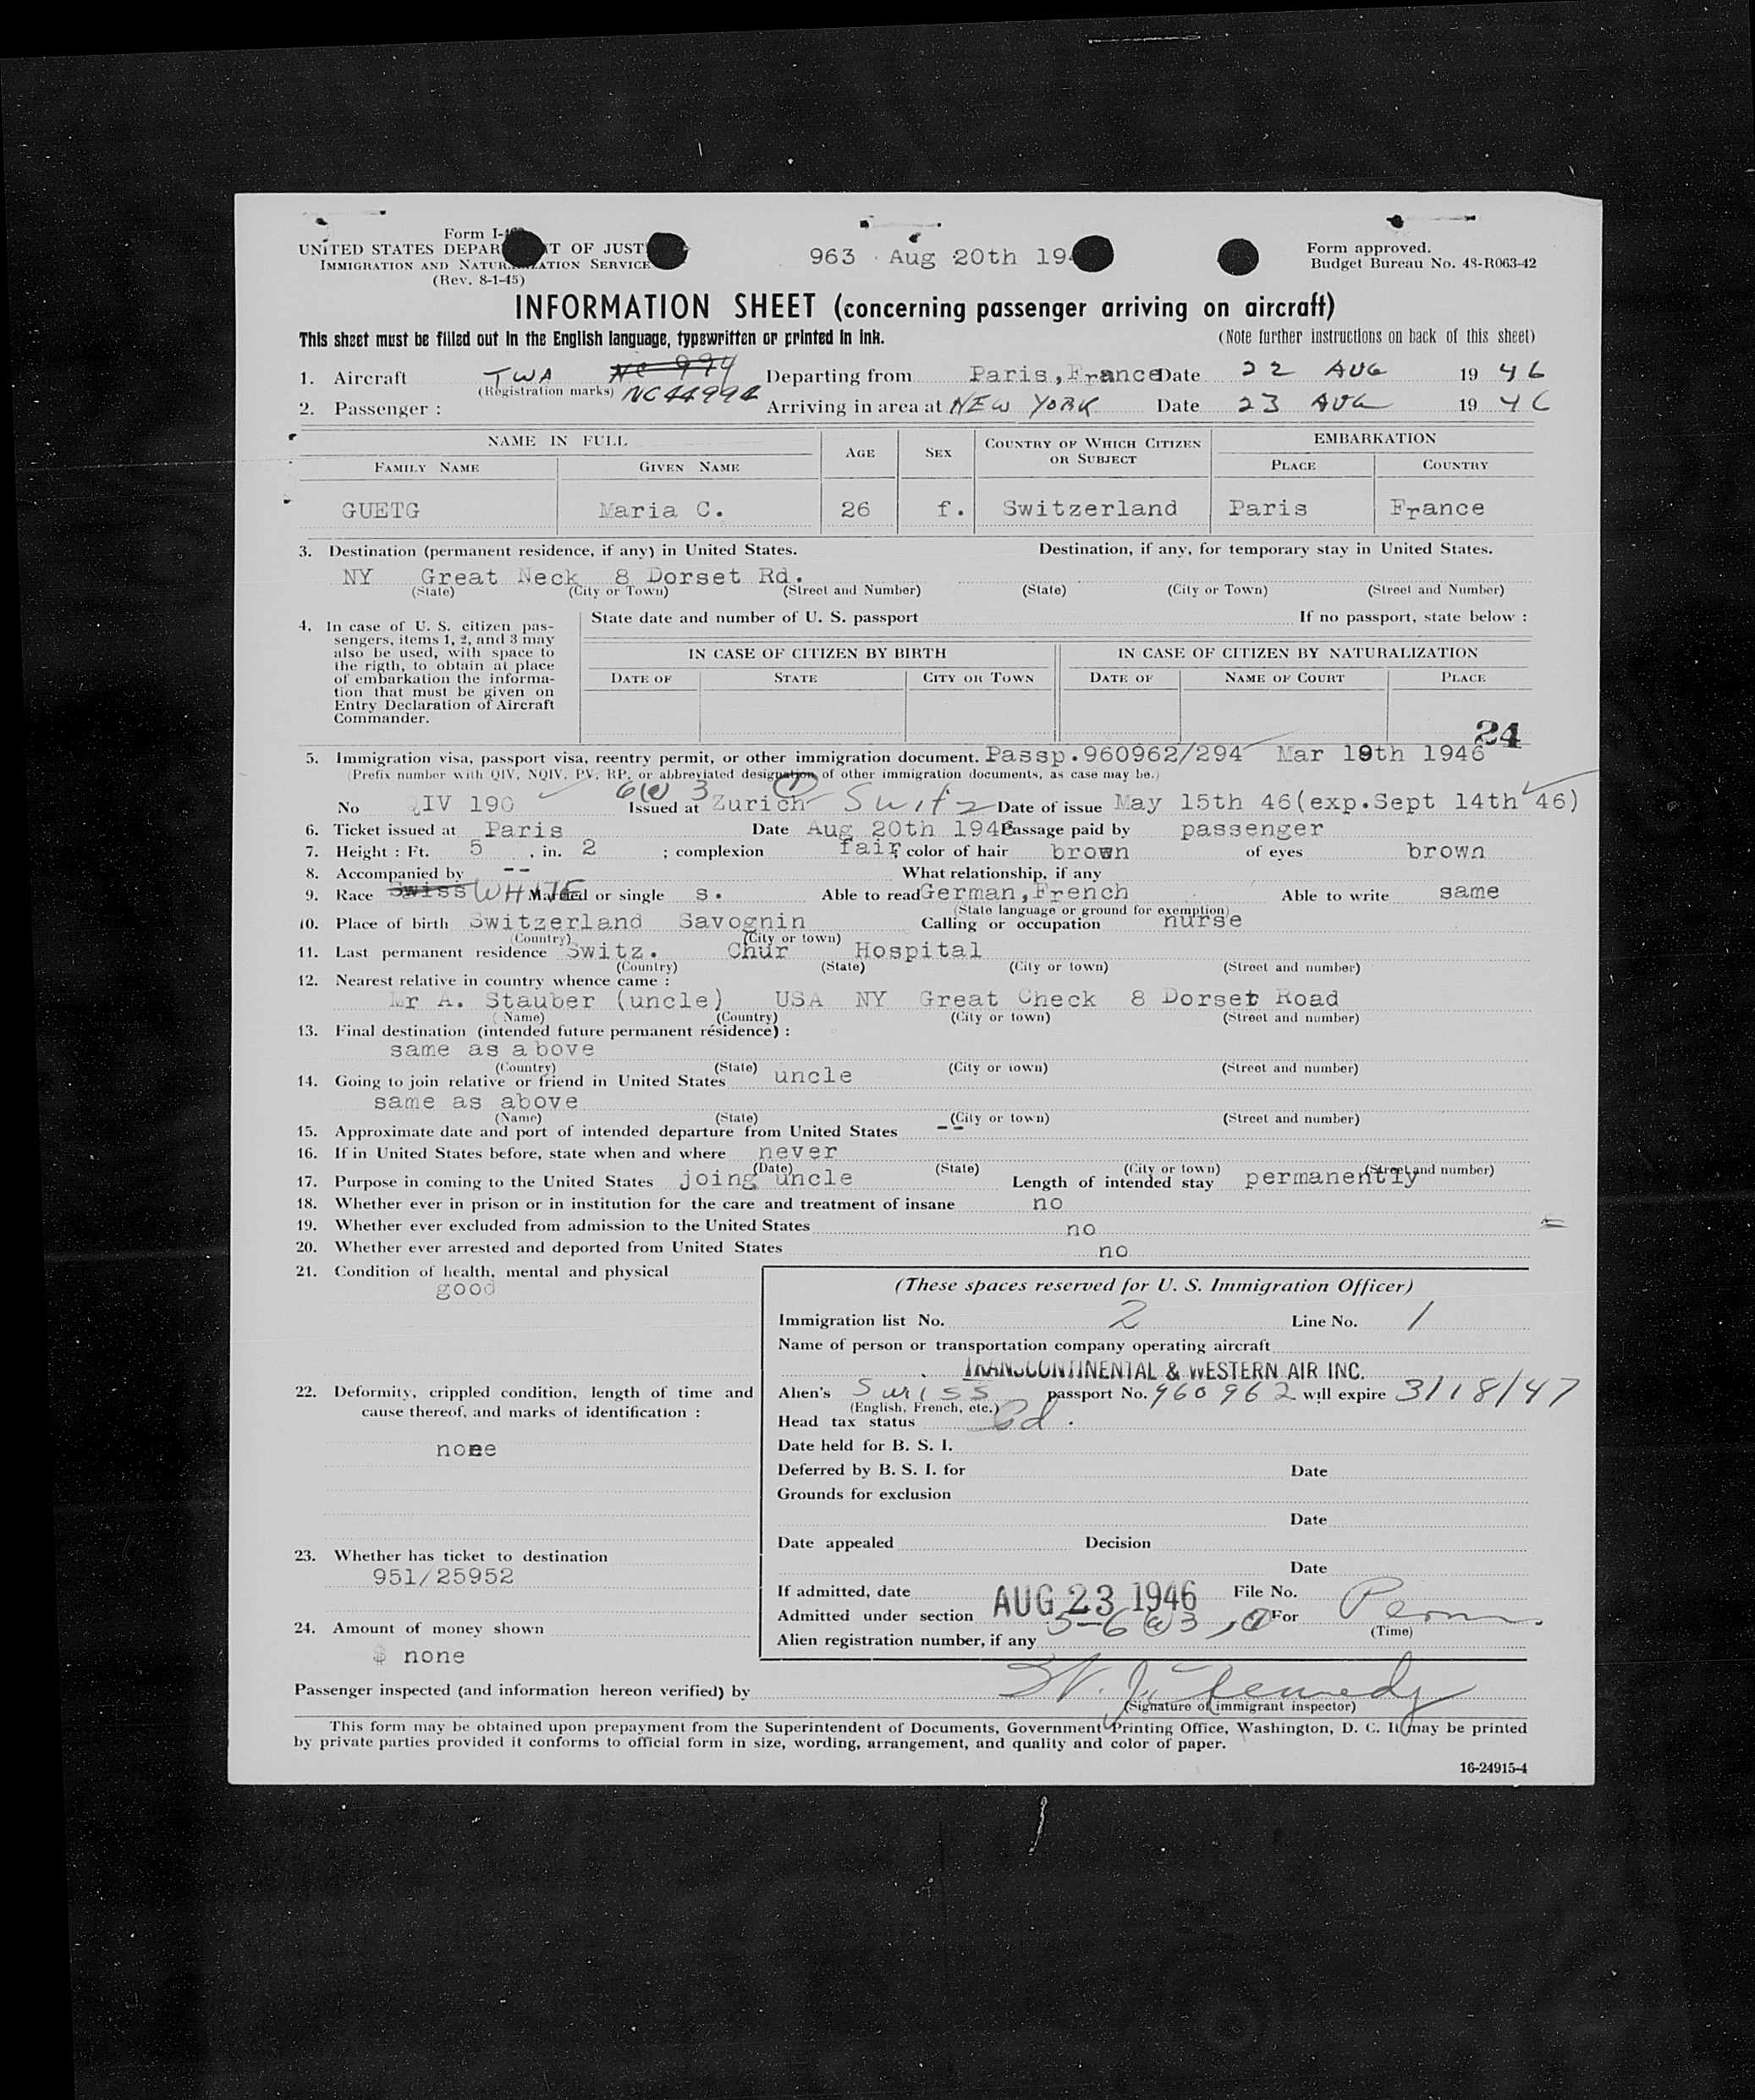 Form I-
UNITED STATES DEPAR T OF JUST
IMMIGRATION AND NATUR ZATION SERVICE
(Rev. 8-1-45)
963 Aug 20th 19
Form approved.
Budget Bureau No. 43-R063-42
INFORMATION SHEET (concerning passenger arriving on aircraft)
This sheet must be filled out in the English language, typewritten or printed in ink. (Note further instructions on back of this sheet)
1. Aircraft TWA NC 994 Departing from Paris, France Date 22 AUG 19 46
(Registration marks) NC44994
2. Passenger : Arriving in area at NEW YORK Date 23 AUG 19 46
NAME IN FULL AGE SEX COUNTRY OF WHICH CITIZEN OR SUBJECT EMBARKATION
FAMILY NAME GIVEN NAME PLACE COUNTRY
GUETG Maria C. 26 f. Switzerland Paris France
3. Destination (permanent residence, if any) in United States. Destination, if any, for temporary stay in United States.
NY Great Neck 8 Dorset Rd.
(State) (City or Town) (Street and Number) (State) (City or Town) (Street and Number)
4. In case of U. S. citizen pas-
sengers, items 1, 2, and 3 may
also be used, with space to
the rigth, to obtain at place
of embarkation the informa-
tion that must be given on
Entry Declaration of Aircraft
Commander.
State date and number of U. S. passport If no passport, state below :
IN CASE OF CITIZEN BY BIRTH IN CASE OF CITIZEN BY NATURALIZATION
DATE OF STATE CITY OR TOWN DATE OF NAME OF COURT PLACE
24
5. Immigration visa, passport visa, reentry permit, or other immigration document. Passp.960962/294 Mar 19th 1946
(Prefix number with QIV, NQIV, PV, RP, or abbreviated designation of other immigration documents, as case may be.)
6(a) 3 (1)
No QIV 190 Issued at Zurich Switz Date of issue May 15th 46(exp.Sept 14th 46)
6. Ticket issued at Paris Date Aug 20th 1946 Passage paid by passenger
7. Height : Ft. 5 , in. 2 ; complexion fair; color of hair brown of eyes brown
8. Accompanied by -- What relationship, if any
9. Race Swiss WHITE Married or single s. Able to read German,French Able to write same
(State language or ground for exemption)
10. Place of birth Switzerland Savognin Calling or occupation nurse
(Country) (City or town)
11. Last permanent residence Switz. Chur Hospital
(Country) (State) (City or town) (Street and number)
12. Nearest relative in country whence came :
Mr A. Stauber (uncle) USA NY Great Check 8 Dorset Road
(Name) (Country) (City or town) (Street and number)
13. Final destination (intended future permanent résidence) :
same as above
(Country) (State) (City or town) (Street and number)
14. Going to join relative or friend in United States uncle
same as above
(Name) (State) (City or town) (Street and number)
15. Approximate date and port of intended departure from United States --
16. If in United States before, state when and where never
(Date) (State) (City or town) (Street and number)
17. Purpose in coming to the United States joing uncle Length of intended stay permanently
18. Whether ever in prison or in institution for the care and treatment of insane no
19. Whether ever excluded from admission to the United States no
20. Whether ever arrested and deported from United States no
21. Condition of health, mental and physical
good
22. Deformity, crippled condition, length of time and
cause thereof, and marks of identification :
none
23. Whether has ticket to destination
951/25952
24. Amount of money shown
$ none
(These spaces reserved for U. S. Immigration Officer)
Immigration list No. 2 Line No. 1
Name of person or transportation company operating aircraft
TRANSCONTINENTAL & WESTERN AIR INC.
Alien's Swiss passport No. 960962 will expire 3/18/47
(English, French, etc.)
Head tax status Pd.
Date held for B. S. I.
Deferred by B. S. I. for Date
Grounds for exclusion
Date
Date appealed Decision
Date
If admitted, date AUG 23 1946 File No.
Admitted under section 5-6(a)3,(1) For Perm.
(Time)
Alien registration number, if any
Passenger inspected (and information hereon verified) by
(Signature of immigrant inspector)
This form may be obtained upon prepayment from the Superintendent of Documents, Government Printing Office, Washington, D. C. It may be printed
by private parties provided it conforms to official form in size, wording, arrangement, and quality and color of paper.
16-24915-4